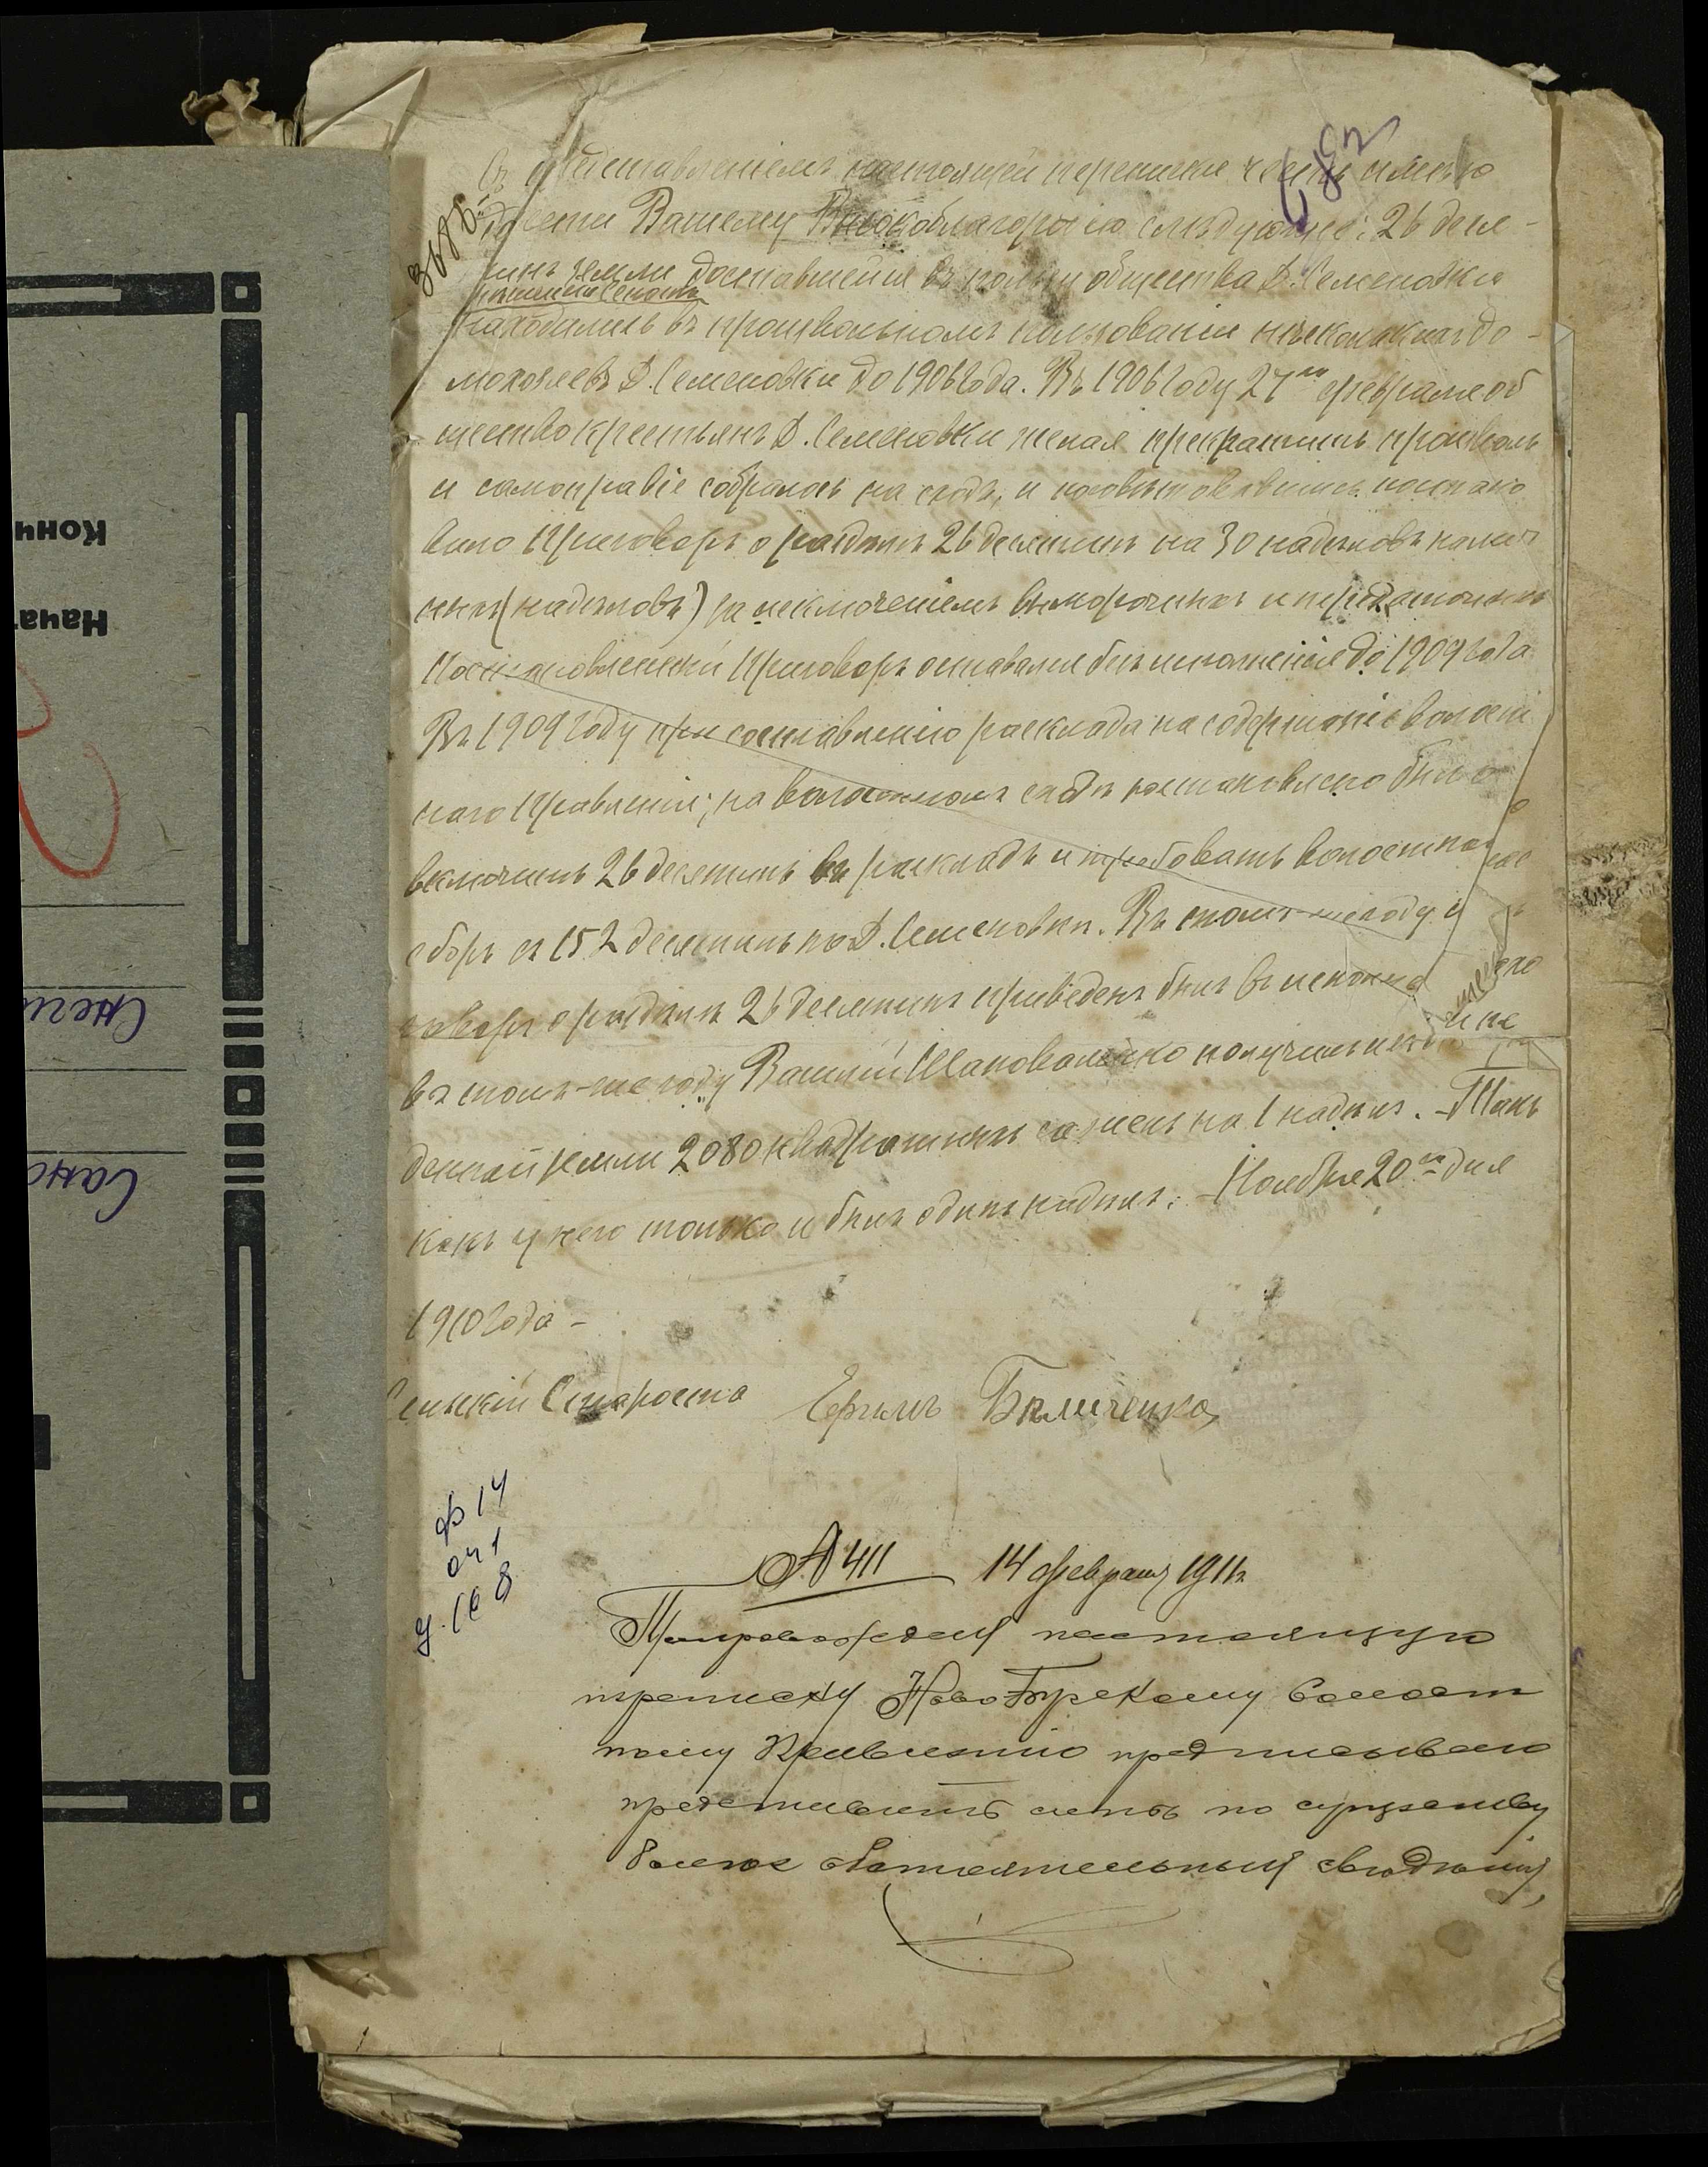 682
Съ представленіемъ настоящей переписки честь имѣю
донести Вашему Высокоблагородію слѣдующее: 26 деся-
тинъ земли доставшейся въ пользу общества Д. Семеновки
находились въ произвольномъ пользованіи нѣсколькихъ до-
мохозяевъ Д. Семеновки до 1906 года. Въ 1906 году 27го февраля об
щество крестьянъ Д. Семеновки желая прекратить произволъ
и самоправіе собралось на сходъ, и посовѣтовавшись постано
вило Приговоръ о раздѣлѣ 26 десятинъ на 30 надѣловъ налич
ныхъ (надѣловъ) за исключеніемъ выморочныхъ и
Постановленный Приговоръ оставался безъ исполненія до 1909 года.
Въ 1909 году при составленію расклада на содержаніе волост
ного Правленія; на волостномъ сходѣ постановлено было
включить 26 десятинъ въ раскладъ и требовать волостной
сборъ съ 152 десятинъ по Д. Семеновкѣ. Въ томъ-же году
говоръ о раздѣлѣ 26 десятинъ приведенъ былъ въ исполне
въ томъ-же году Василій Шаповаленко получилъ
денной земли 2080 квадратныхъ сажень на 1 надѣлъ. -Такъ
какъ у него только и былъ одинъ надѣлъ. -Ноября 20го дня
1910 года -
Сельскій Староста Ефимъ Бѣличенко
ф 14
оп 1
д. 168
№ 411 14 февраля 1911г
Препровождая настоящую
переписку Ново Бугскому Волост
ному Правленію предписываю
представить мнѣ по существу
болѣе обстоятельныя свѣдѣнія,
Конч
Нача